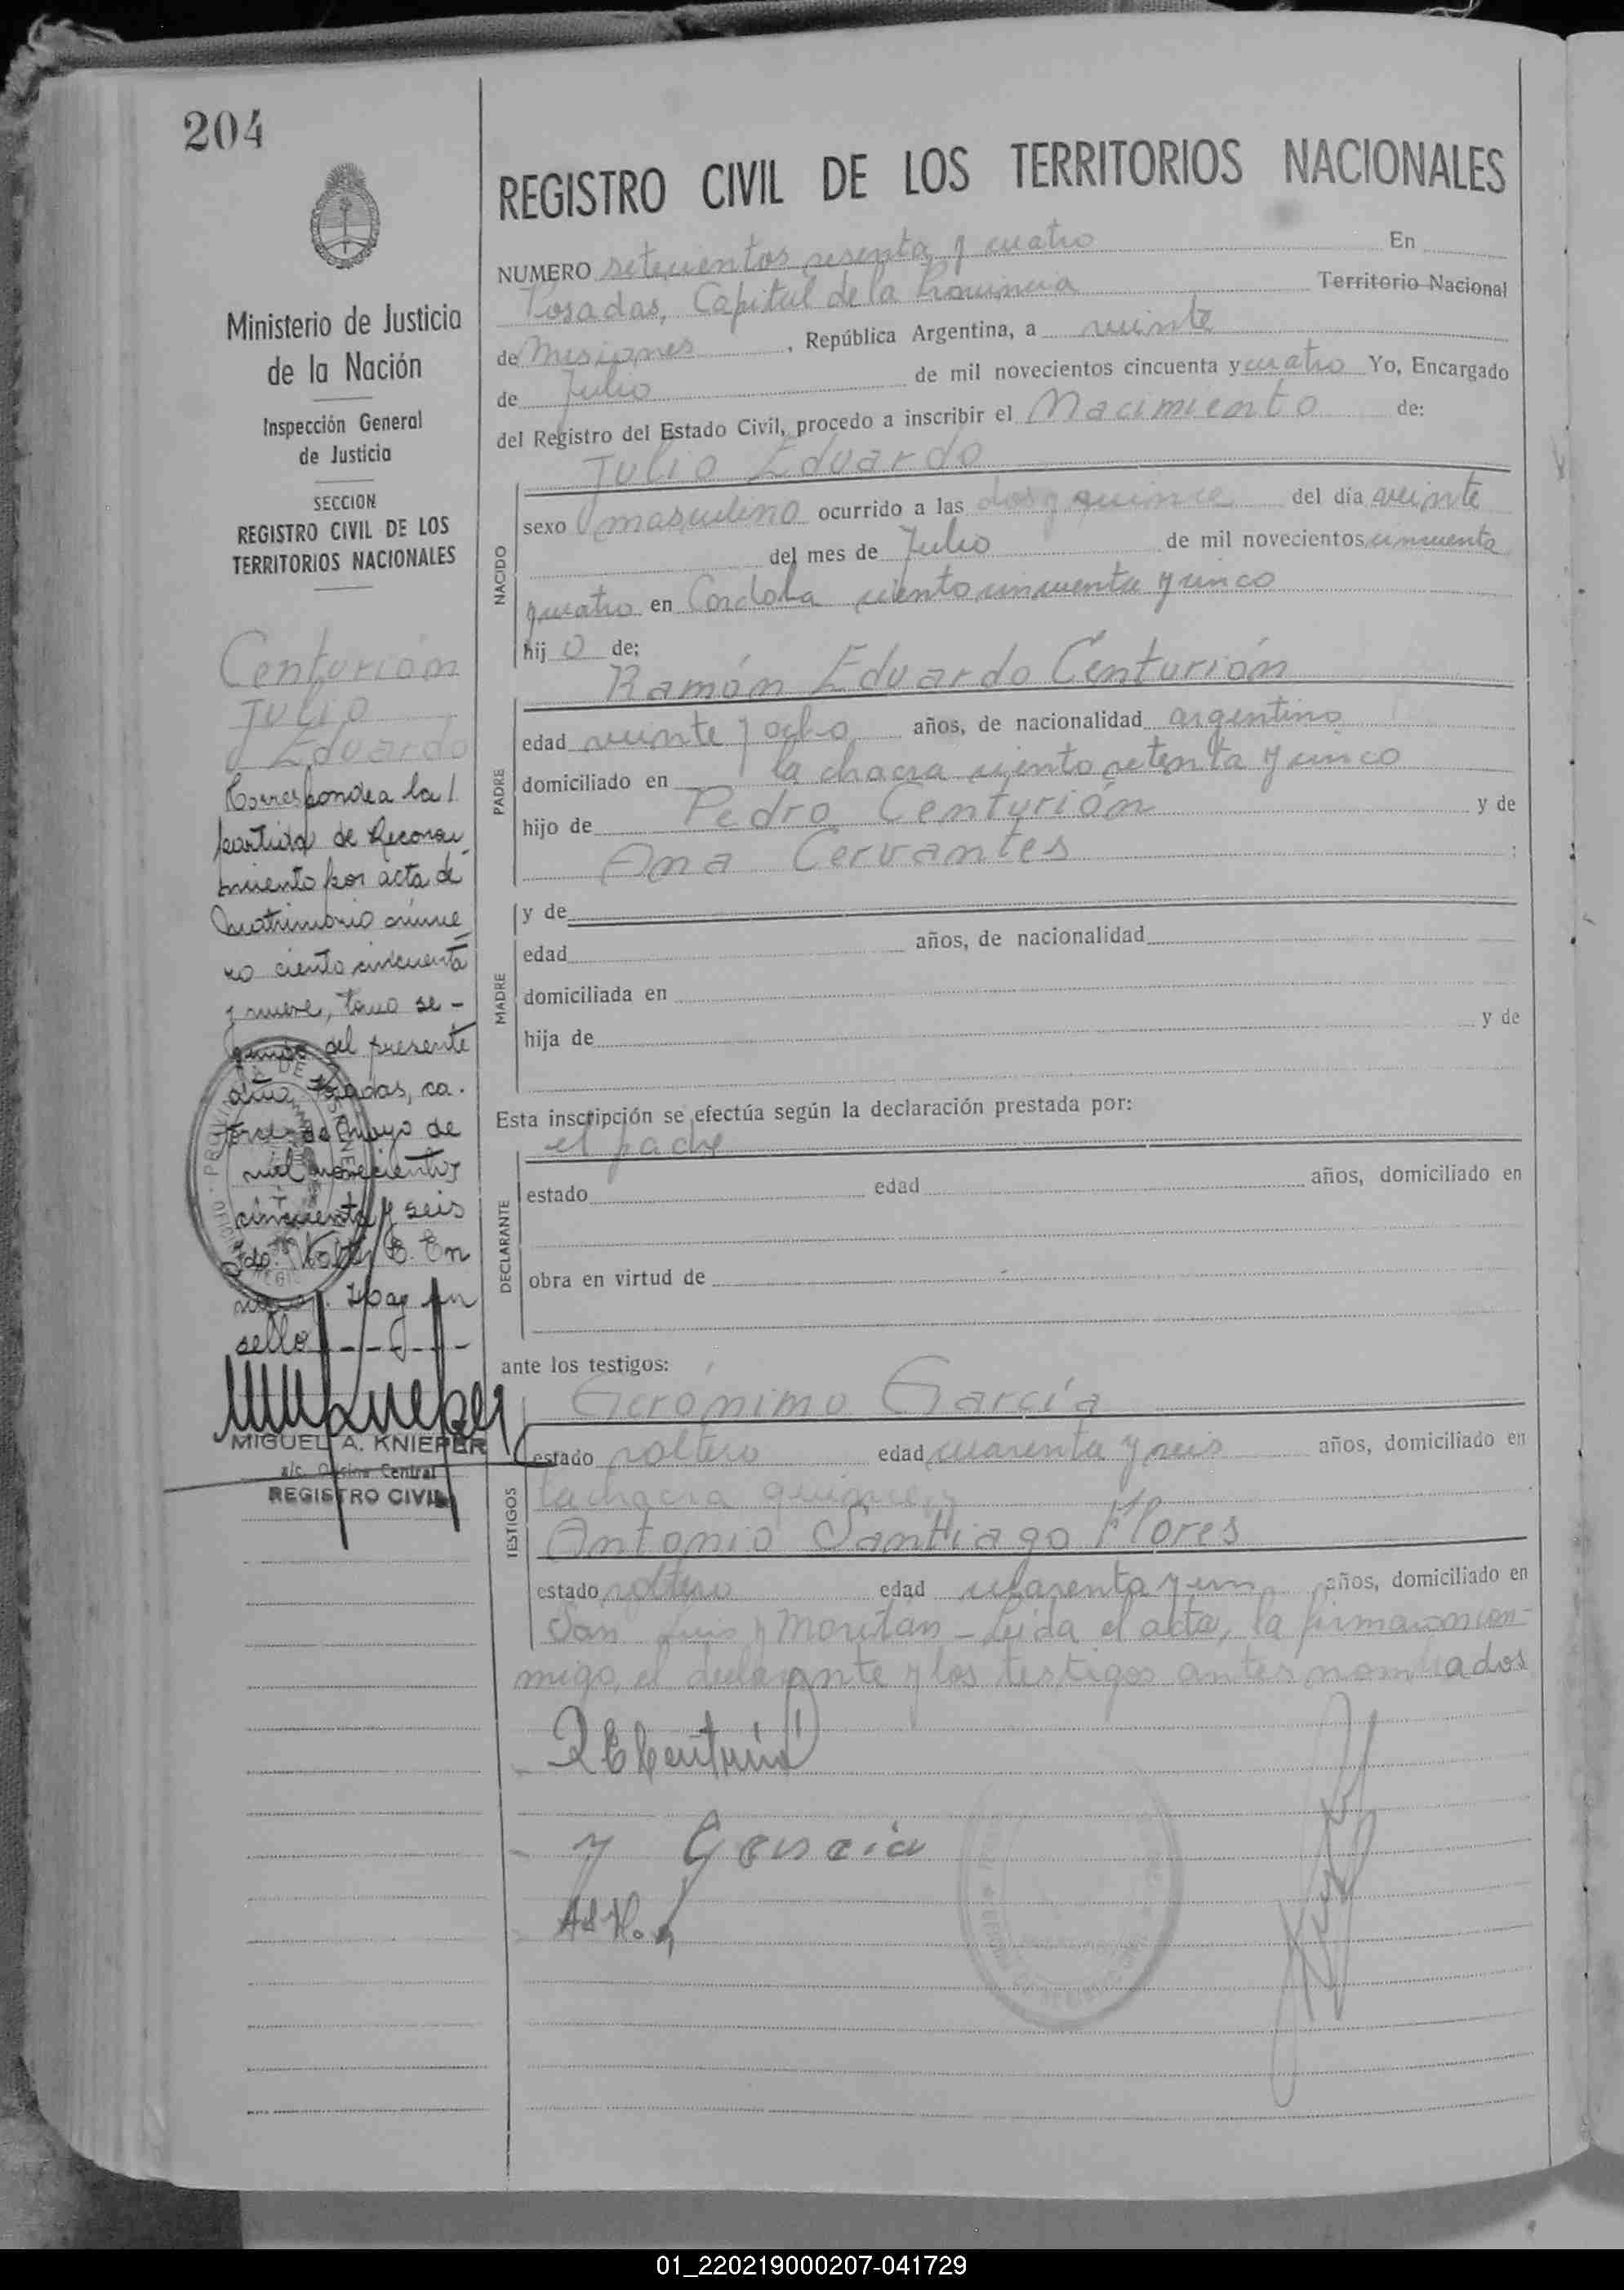 204
Ministerio de Justicia
de la Nación
Inspección General
de Justicia
SECCION
REGISTRO CIVIL DE LOS
TERRITORIOS NACIONALES
Centurión
Julio
Eduardo
Corresponde a la
partida de Reconoci
miento por acta de
Matrimonio núme
ro ciento cincuenta
y nueve, tomo se-
gundo del presente
año, Posadas, ca-
torce de Mayo de
mil novecientos
cincuenta y seis
Fdo.
Hay un
sello
MIGUEL A. KNIEPER
a/c. Oficina Central
REGISTRO CIVIL
REGISTRO CIVIL DE LOS TERRITORIOS NACIONALES
NUMERO setecientos sesenta y cuatro En
Posadas, Capital de la Provincia Territorio Nacional
de Misiones, República Argentina, a veinte
de Julio de mil novecientos cincuenta y cuatro Yo, Encargado
del Registro del Estado Civil, procedo a inscribir el Nacimiento de:
Julio Eduardo
NACIDO
sexo masculino ocurrido a las dos y quince del día veinte
del mes de Julio de mil novecientos cincuenta
y cuatro en Cordoba ciento cincuenta y cinco
hij o de:
Ramón Eduardo Centurión
PADRE
edad veinte y ocho años, de nacionalidad argentino
domiciliado en la chacra ciento setenta y cinco
hijo de Pedro Centurión y de
Ana Cervantes ;
MADRE
y de
edad años, de nacionalidad
domiciliada en
hija de y de
Esta inscripción se efectúa según la declaración prestada por:
el padre
DECLARANTE
estado edad años, domiciliado en
obra en virtud de
ante los testigos:
Gerónimo García
TESTIGOS
estado soltero edad cuarenta y seis años, domiciliado en
la chacra quince, y
Antonio Santiago Flores
estado soltero edad cuarenta y un años, domiciliado en
San Luis y Moritán - Leida el acta, la firmaron con-
migo, el declarante y los testigos antes nombrados
R E Centurión
y García
01_220219000207-041729